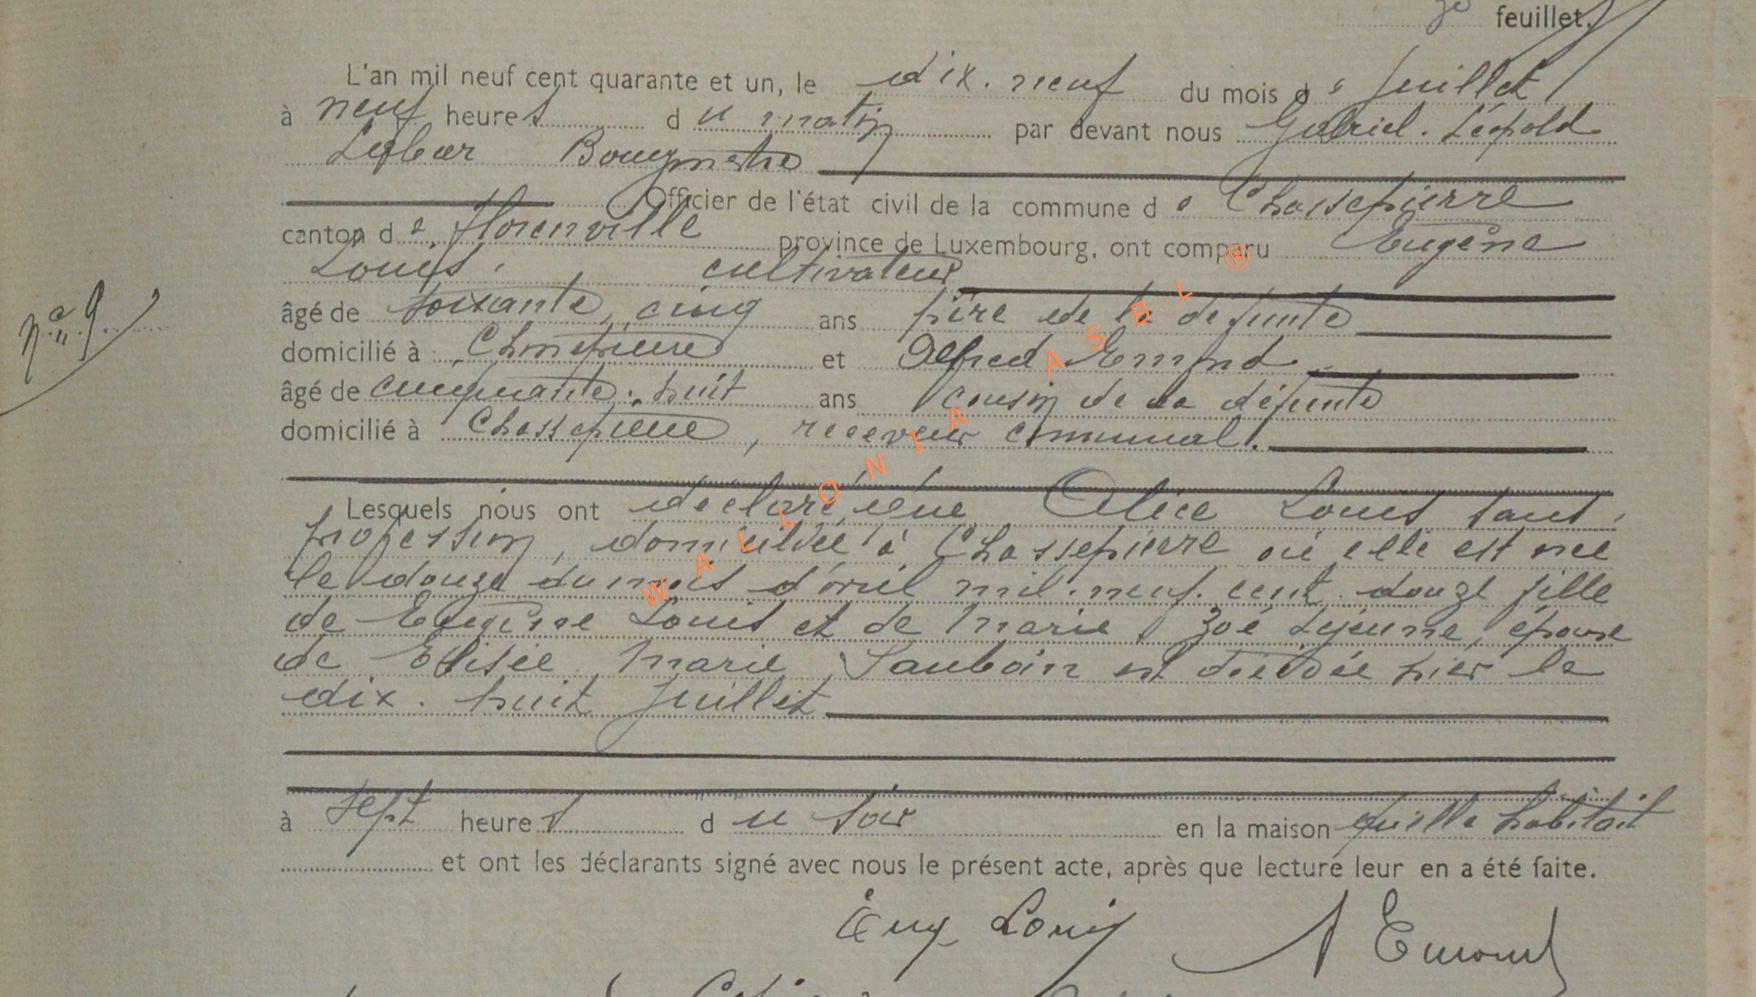 feuillet.
L'an mil neuf cent quarante et un, le dix. neuf du mois de Juillet
à neuf heures du matin par devant nous Gabriel. Léopold
Bourgmestre
Officier de l'état civil de la commune de Chassepierre
canton de Florenville province de Luxembourg, ont comparu Eugène
Louis, cultivateur
âgé de soixante, cinq ans père de la défunte
domicilié à Chassepierre et Alfred Emond
âgé de cinquante. huit ans cousin de la défunte
domicilié à Chassepierre, receveur communal.
Lesquels nous ont déclaré que Alice Louis sans
profession, domiciliée à Chassepierre où elle est née
le douze du mois d'avril mil. neuf. cent. douze fille
de Eugène Louis et de Marie Zoé Lejeune, épouse
de Elisée Marie est décédée hier le
dix. huit Juillet
à sept heures du soir en la maison qu'elle habitait
et ont les déclarants signé avec nous le présent acte, après que lecture leur en a été faite.
n° 9.
Eug Louis A Emond
WALLONIA ASBL ®